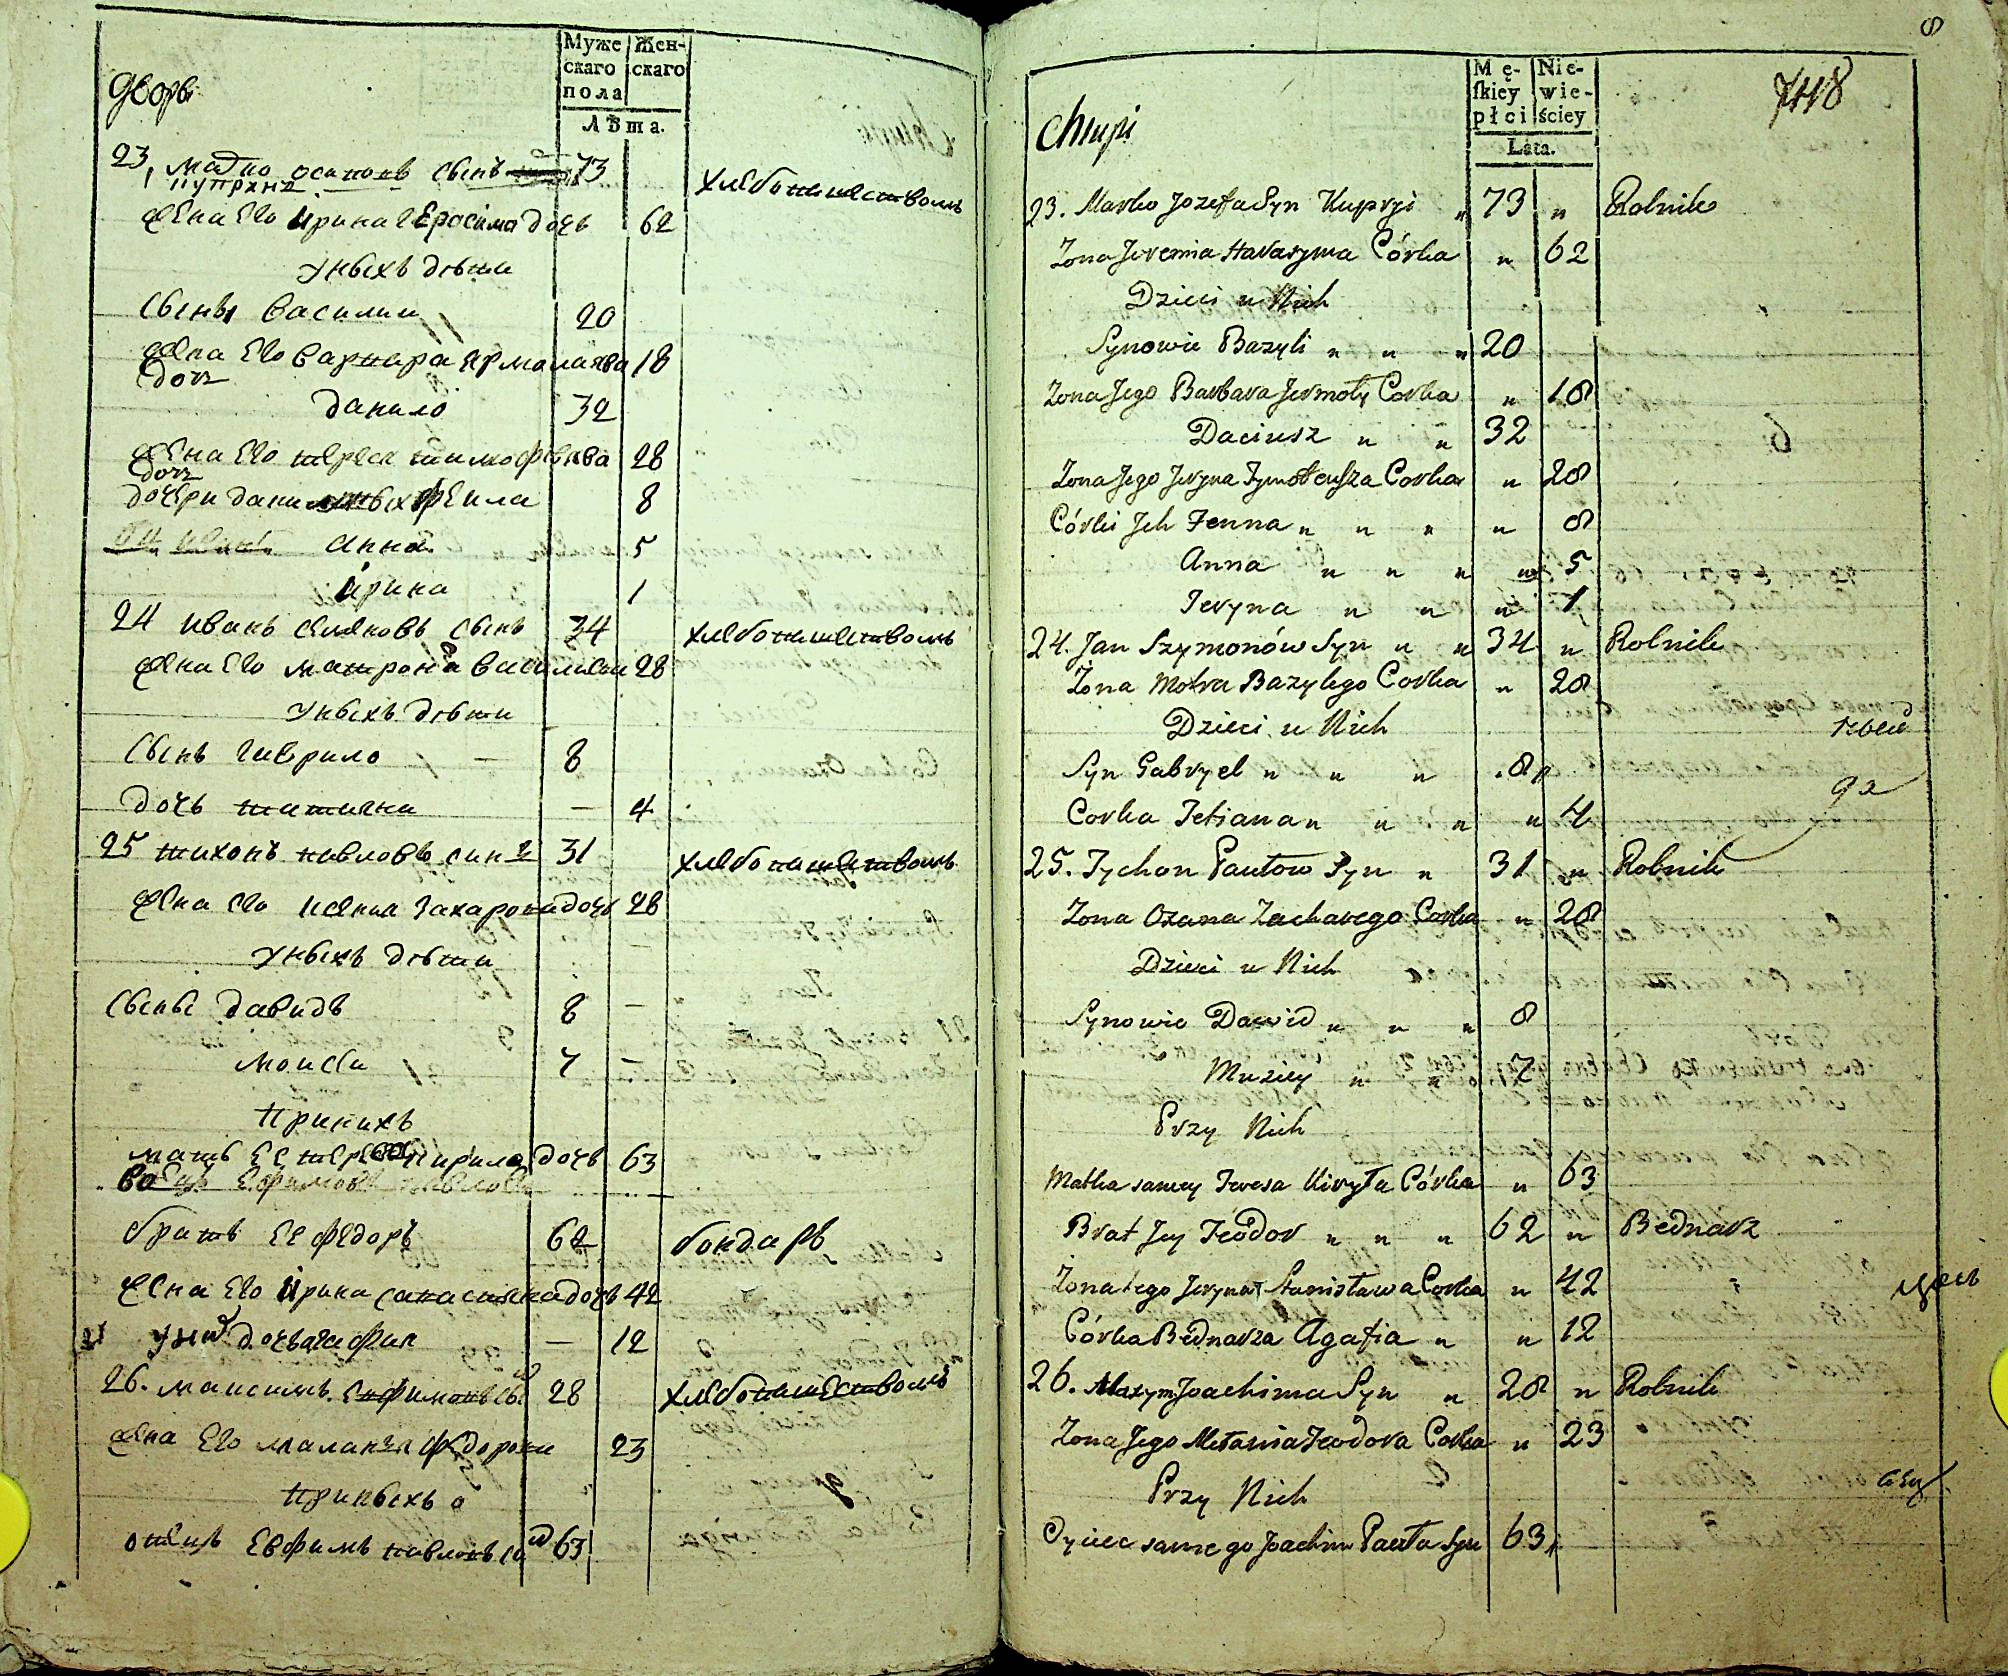 дворъ
Муже
скаго
пола
Жен-
скаго
Лѣта.
23, марко осиповъ сынъ 73 хлебопашествомъ
куприянъ
жена его ирина Герасима дочь 62
у ныхъ дѣти
сыны василии 20
жена его варвара ярмолаева 18
дочъ
данило 32
жена его тимофѣева 28
дочъ
дочери данилиных феила 8
анна 5
ирина 1
24 иванъ семяновъ сынъ 34 хлебопашествомъ
жена его матрона василиева 28
у ныхъ дѣти
сынъ гаврило – 8
дочь татияна – 4
25 тихонъ павловъ синъ 31 хлебопашествомъ
жена его ксения захарова дочь 28
у ныхъ дѣти
сыны давидъ 8 –
моисей 7 –
при нихъ
мать ее кирила дочь 63
братъ ее федоръ 62 бондаръ
жена его ирина дочь 42
у них дочь агафия – 12
26. максимъ ефимовъ сы 28 хлебопашествомъ
жена его маланья федорова 23
при ныхъ
отецъ ефимъ павловъ 63
8
748
Chupi
Mę-
skiey
płci
Nie-
wie-
ściey
Lata.
23. Marko Jozefa Syn Kupryi „ 73 „ Rolnik
Zona Jeremia Harasyma Córka „ 62
Dzieci u Nich
Synowie Bazyli „ „ „ 20
Zona Jego Barbara Jermoły Corka „ 18
Daciusz „ „ 32
Zona Jego Jeryna Tymoteusza Corka „ 28
Córki Jch Fenna „ „ „ „ 8
Anna „ „ „ „ 5
Jeryna „ „ „ 1
24. Jan Szymonów Syn „ „ 34 „ Rolnik
Zona Motra Bazylego Corka „ 28
Dzieci u Nich
Syn Gabryel „ „ „ 8 „
Corka Tetiana „ „ „ „ 4
25. Tychon Pawłow Syn „ 31 „ Rolnik
Zona Oxana Zacharego Corka „ 28
Dzieci u Nich
Synowie Dawid „ „ „ 8
Muziey „ „ 7
Przy Nich
Matka samey Teresa Kiryła Córka „ 63
Brat Jey Teodor „ „ „ 62 „ Bednarz
Zona Jego Jeryna Stanisława Corka „ 42
Córka Bednarza Agafia „ „ 12
26. Maxym Joachima Syn „ 28 „ Rolnik
Zona Jego Mełania Teodora Corka „ 23
Przy Nich
Oyciec samego Joachim Pawła Syn 63 „